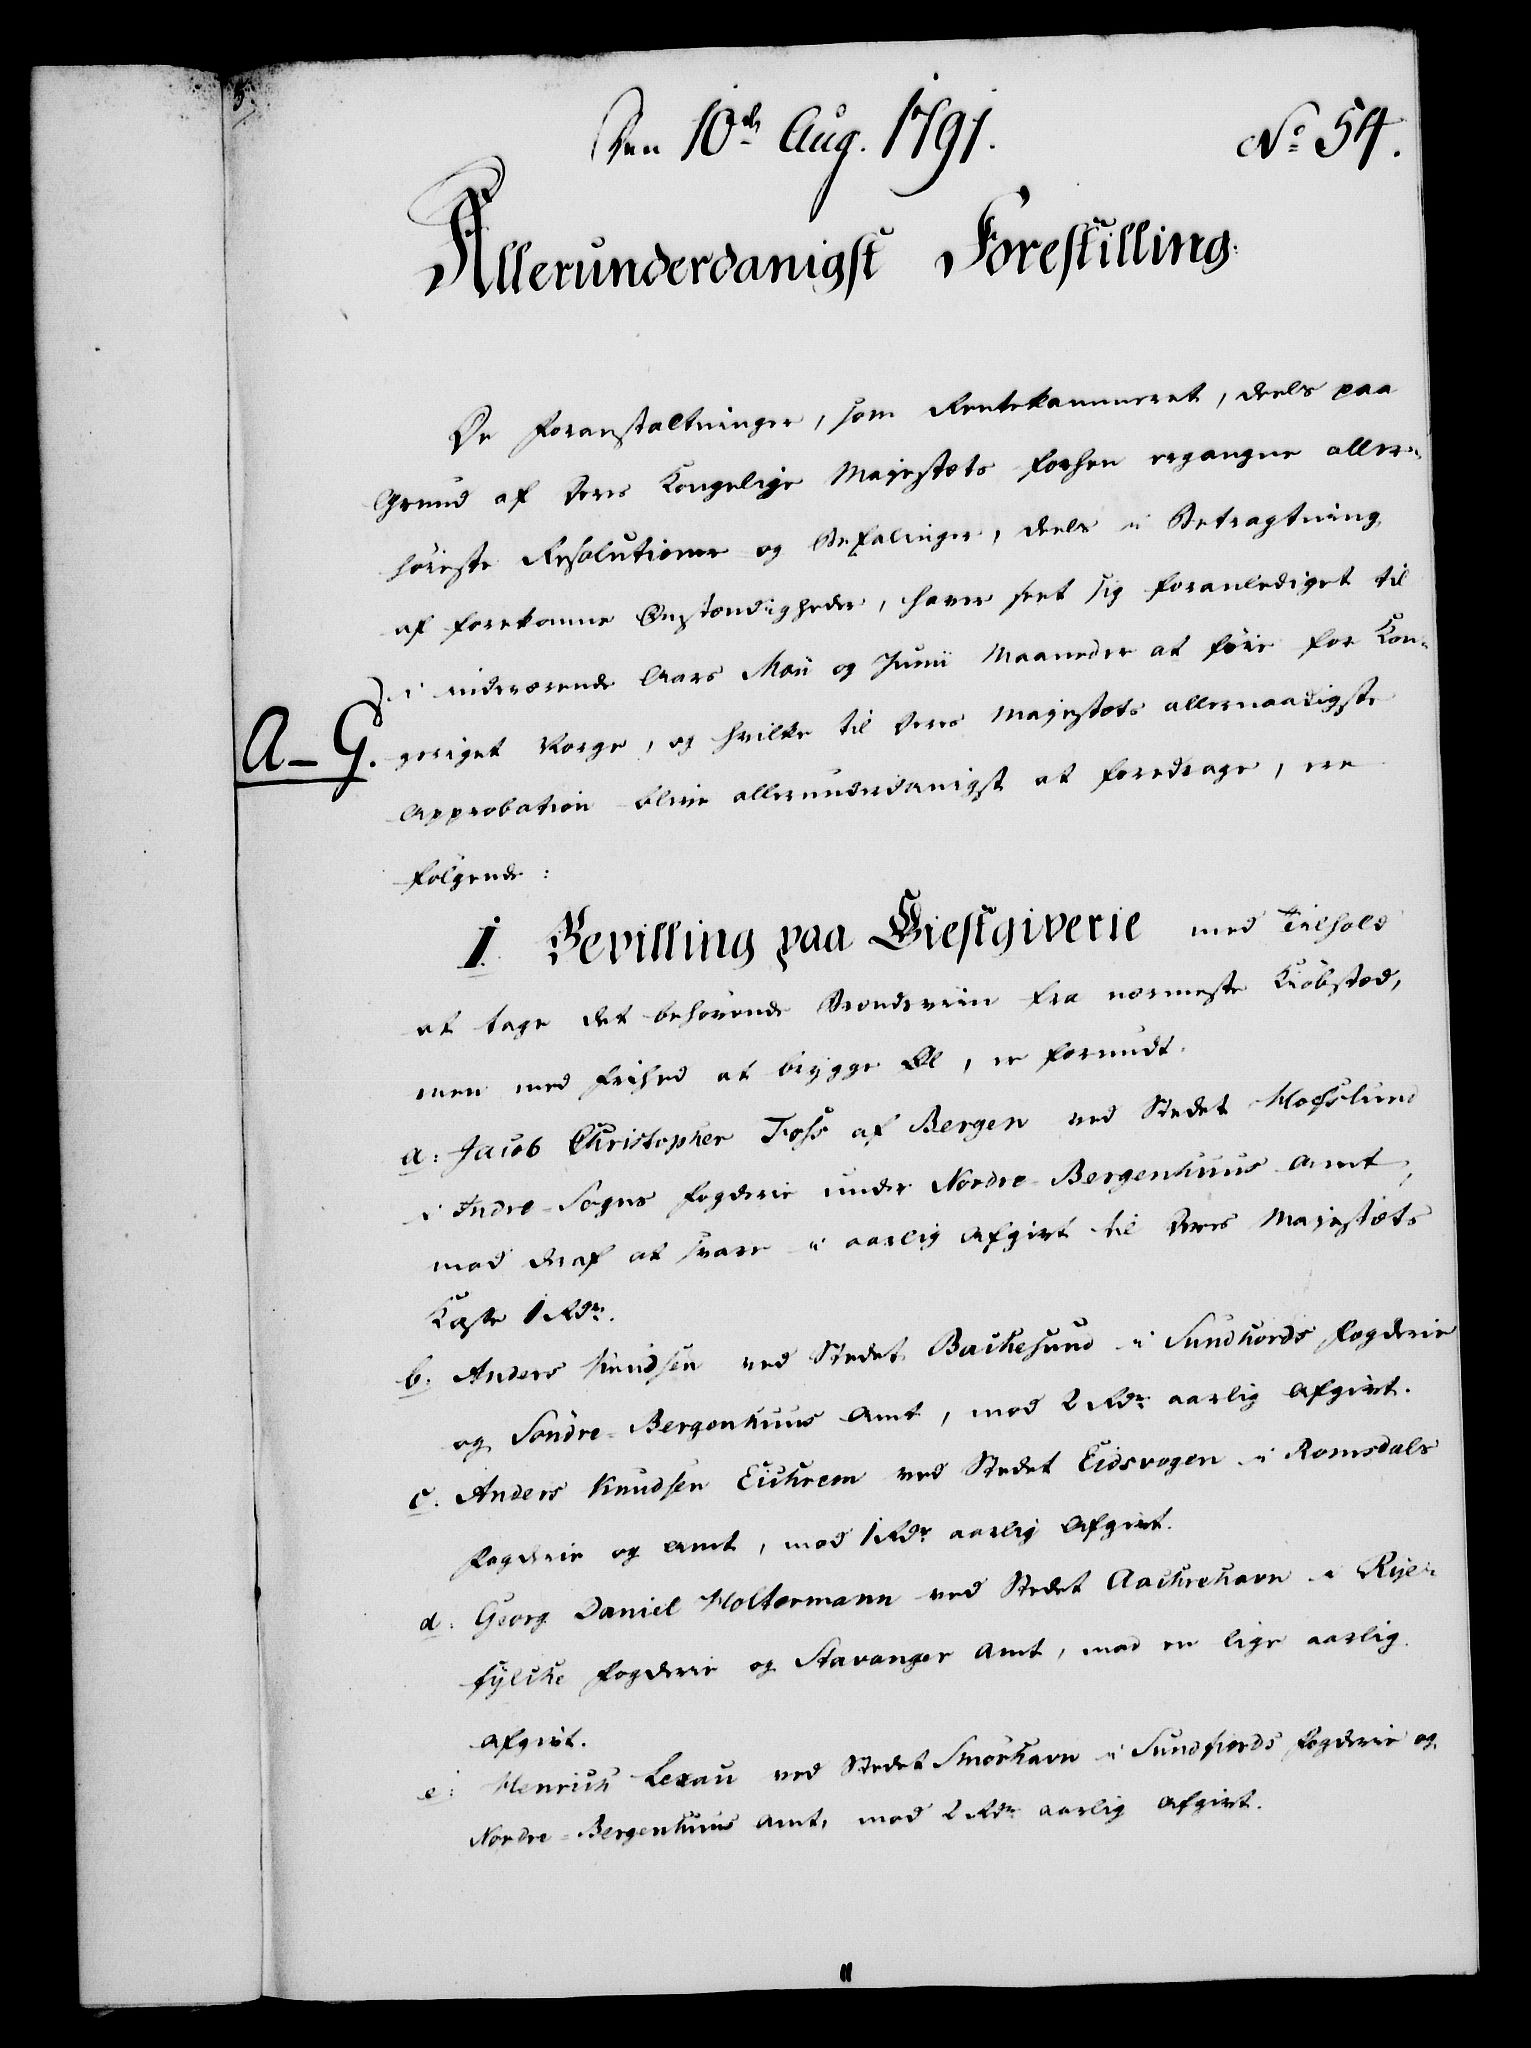 Den 10de Aug. 1791. No 54.
Allerunderdanigst Forestilling.
De Foranstaltninger, som Rentekammeret, deels paa
Grund af Deres Kongelige Majestæts forhen ergangne aller-
høieste Resolutioner og Befalinger, deels i Betragtning
af forekomne Omstændigheder, haver seet sig foranlediget til
i indeværende Aars Maii og Junii Maaneder at føie for Kon-
A-G. geriget Norge, og hvilke til Deres Majestæts allernaadigste
Approbation blive allerunderdanigst at foredrage, ere
følgende:
1. Bevilling paa Giestgiverie med Tilhold
at tage det behøvende Brændeviin fra nærmeste Kiøbstæd,
men med Frihed at brygge Øl, er forundt.
a: Jacob Christopher Foss af Bergen ved Stedet Hofslund
i Indre-Sogns Fogderie under Nordre-Bergenhuus Amt,
mod deraf at svare i aarlig Afgivt til Deres Majestæts
Kasse 1 Rdr.
b. Anders Knudsen ved Stedet Bachesund i Sundhords Fogderie
og Søndre-Bergenhuus Amt, mod 2 Rdr aarlig Afgivt.
c. Anders Knudsen Eichrem ved Stedet Eidsvogen i Romsdals
Fogderie og Amt, mod 1 Rdr aarlig Afgivt.
d. Georg Daniel Holtermann ved Stedet Aachrehavn i Rye-
fylche Fogderie og Stavanger Amt, mod en lige aarlig
Afgivt.
e: Henrich Lexau ved Stedet Smørhavn i Sundfiords Fogderie og
Nordre-Bergenhuus Amt, mod 2 Rdr aarlig Afgivt.